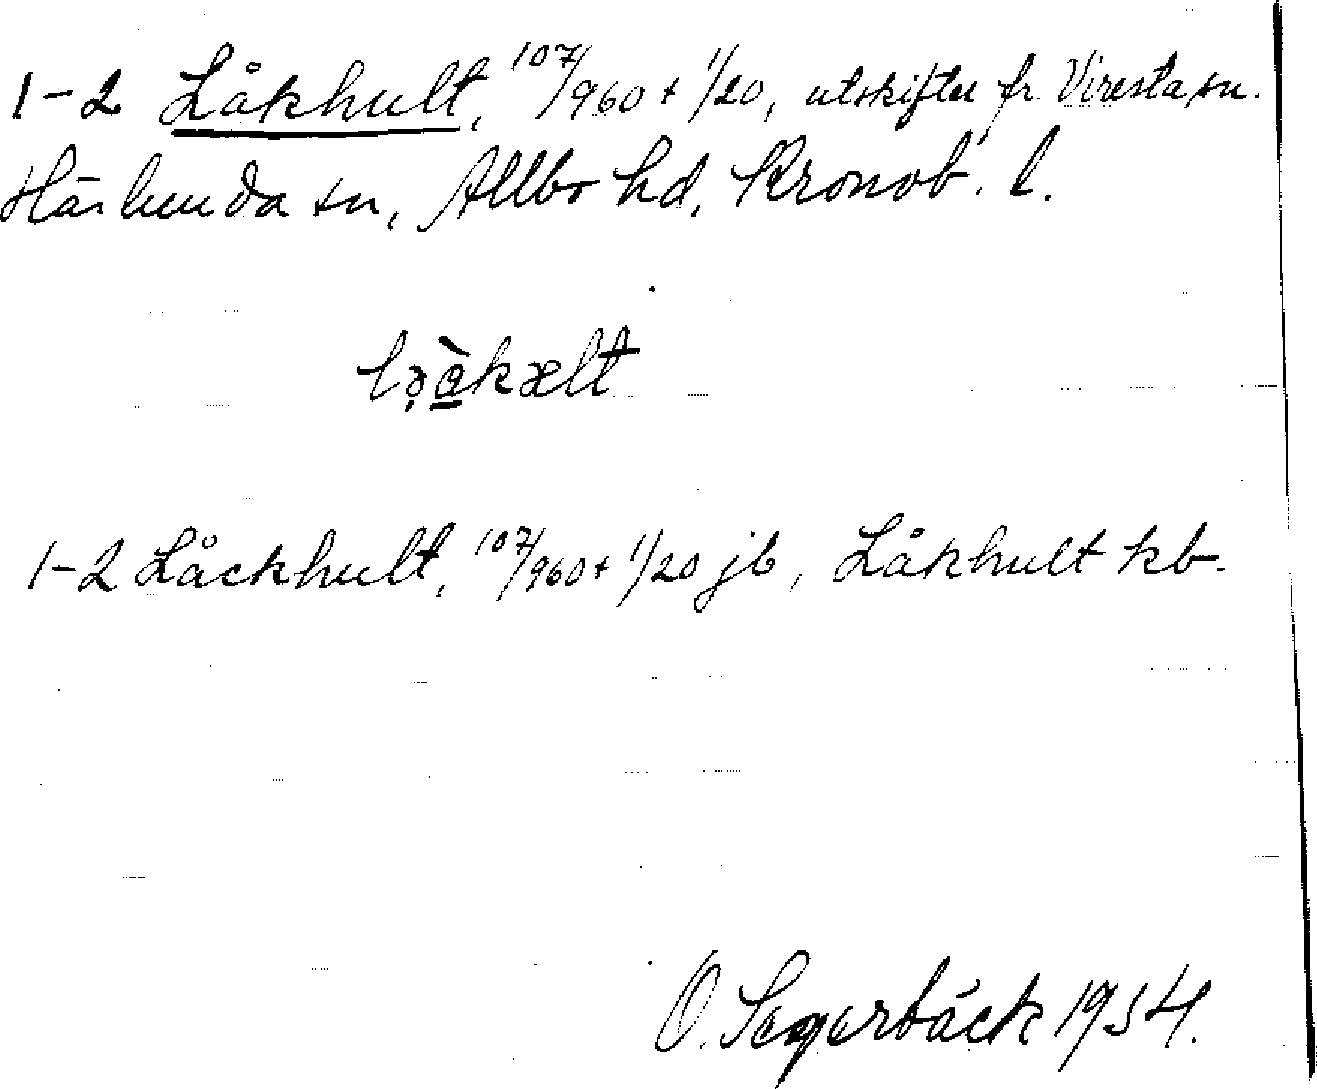 1-2 Låkhult, 107/960 + 1/20, utskifter fr. Virestad sn.
Härlunda sn, Allbo hd, Kronob. l.
lə̣àkælt
1-2 Låckhult, 107/960 + 1/20 jb, Låkhult kb.
O. Segerbäck 1934.